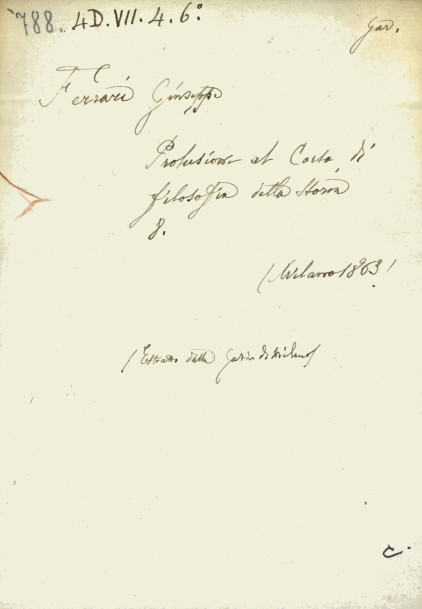 788. 4D. VII. 4. 6º
Gar.
Ferrari Giuseppe
Prolusione al Corso di
filosofia della Storia
8.
(Milano 1863)
(Estratto dalla Gazza di Milano)
C.